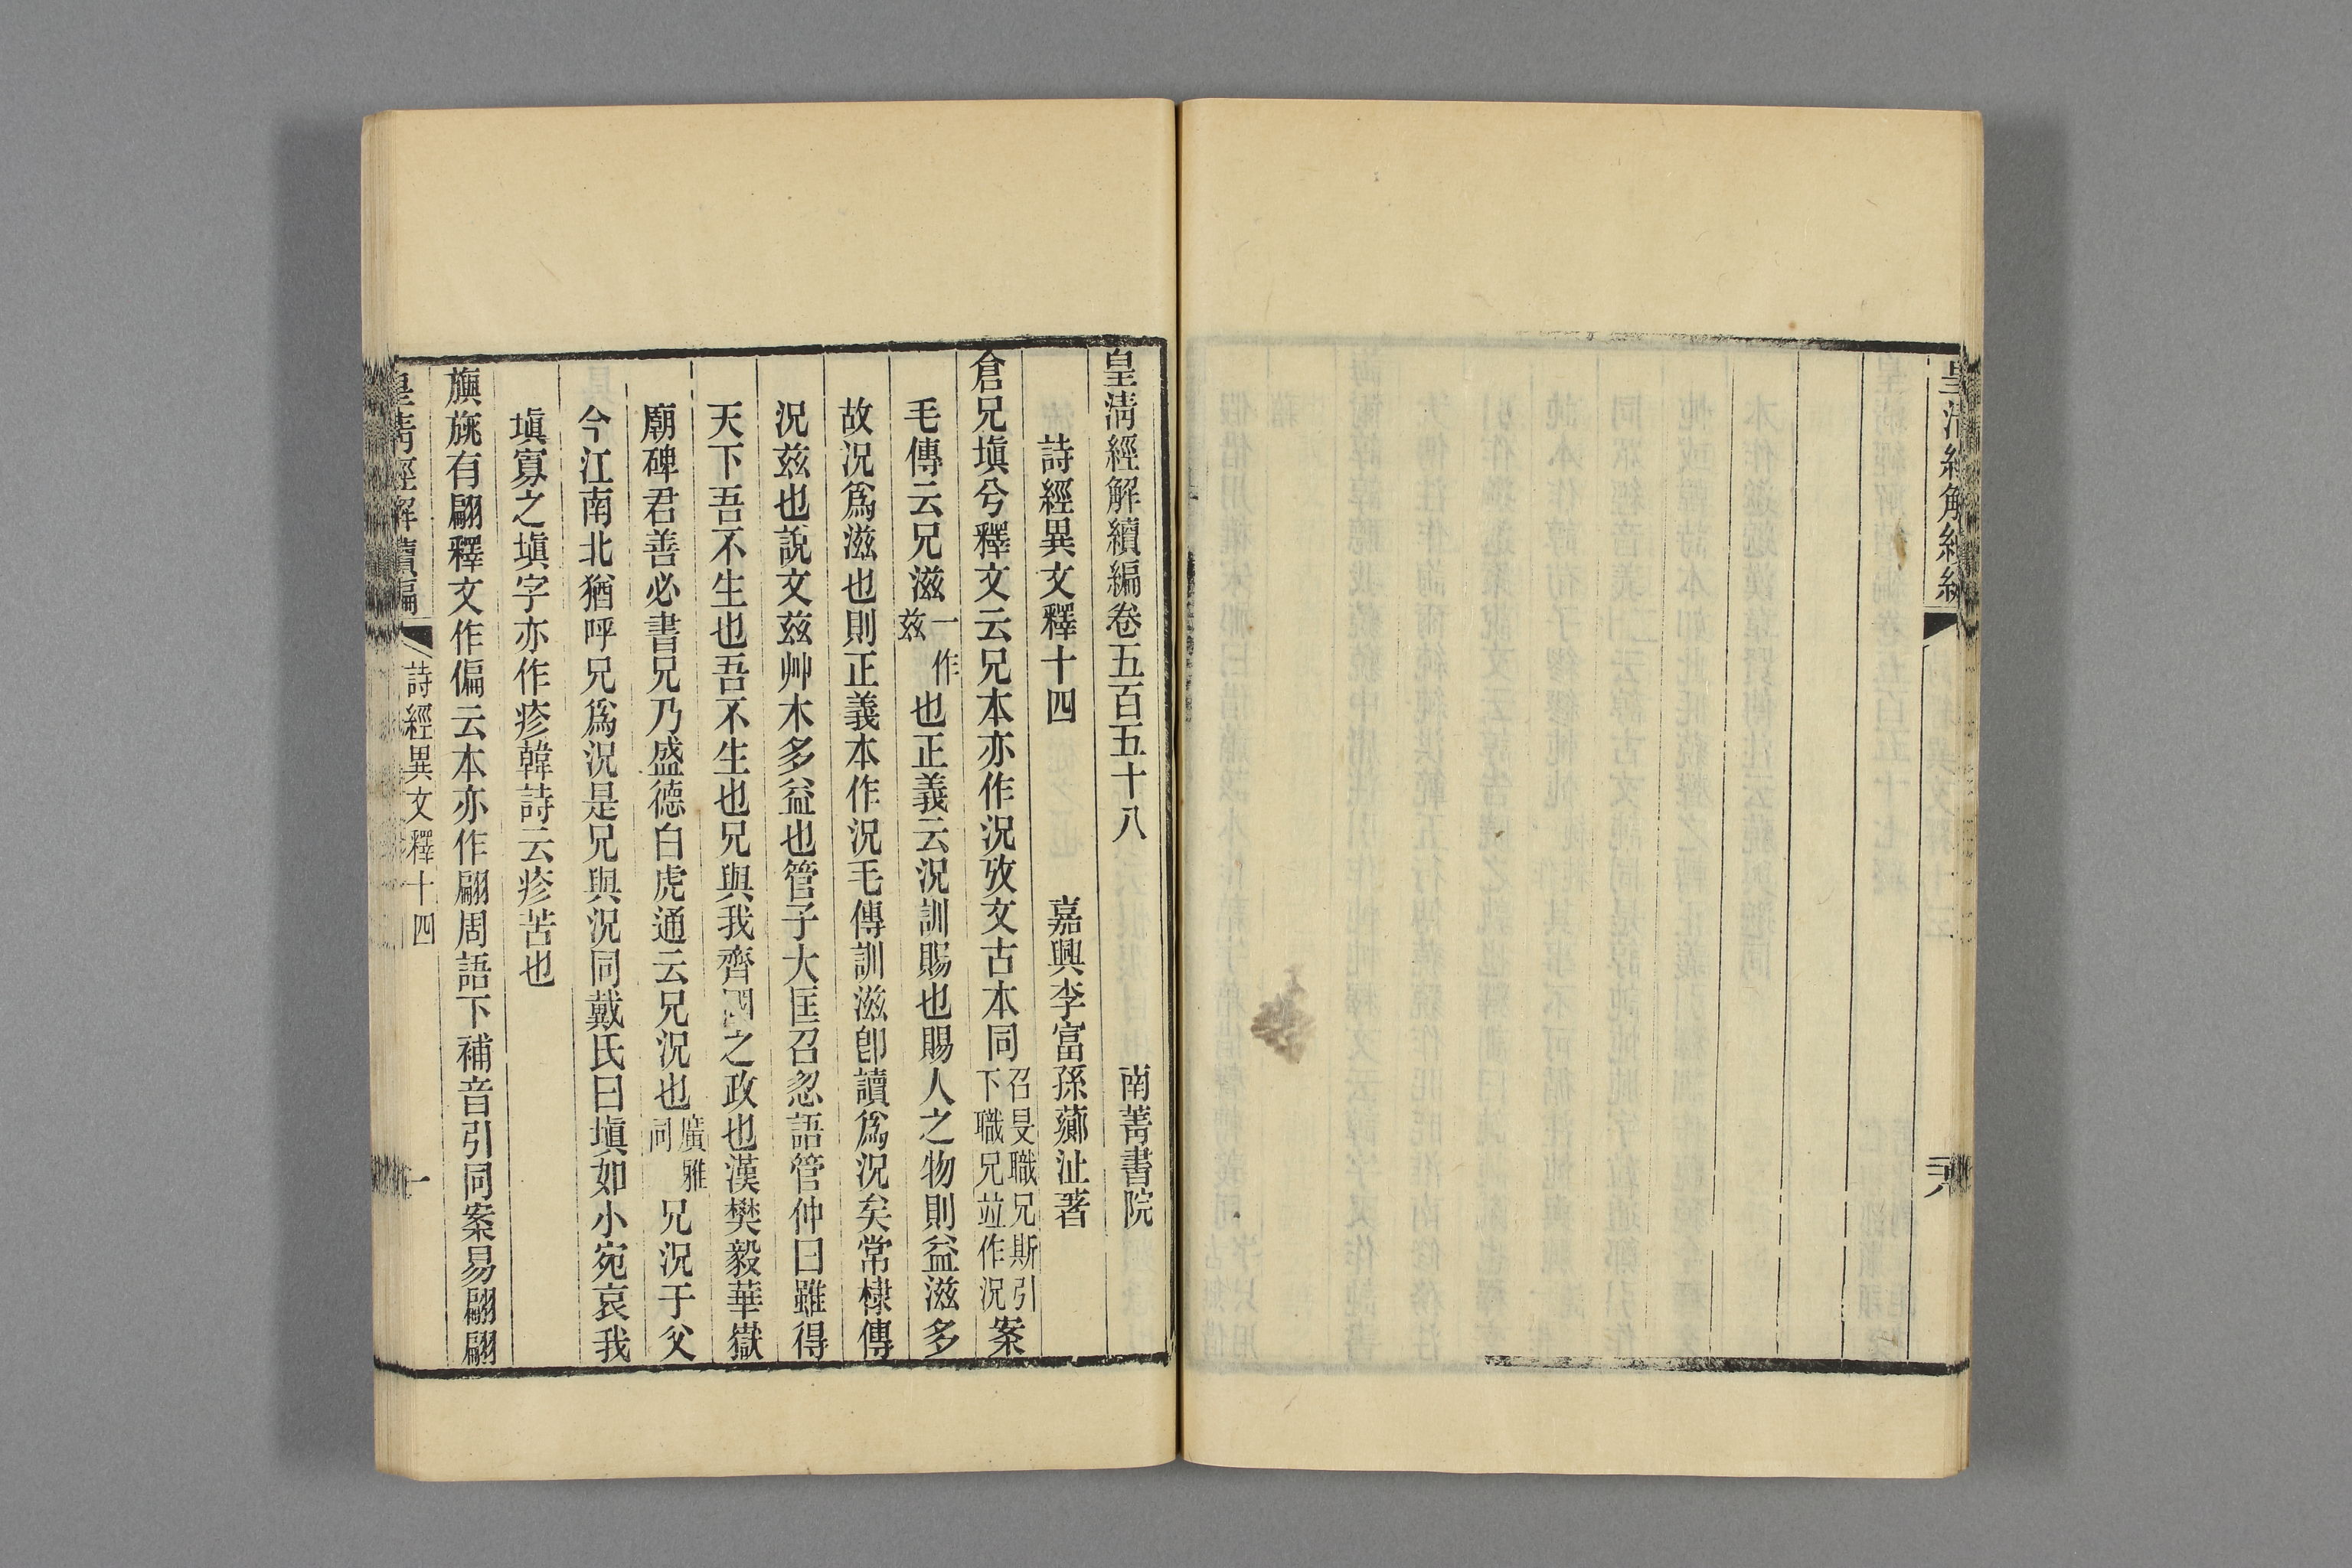 皇清經解續編卷五百五十八 南菁書院
詩經異文釋十四 嘉興李富孫薌沚著
倉兄塡兮釋文云兄本亦作況攷文古本同召旻職兄斯引下職兄竝作況案
毛傳云兄滋一作兹也正義云況訓賜也賜人之物則益滋多
故況爲滋也則正義本作況毛傳訓滋卽讀爲況矣常棣傳
況兹也說文兹艸木多益也管子大匡召忽語管仲曰雖得
天下吾不生也吾不生也兄與我齊國之政也漢樊毅華嶽
廟碑君善必書兄乃盛德白虎通云兄況也廣雅同兄況于父
今江南北猶呼兄爲況是兄與況同戴氏曰塡如小宛哀我
塡寡之塡字亦作疹韓詩云疹苦也
旟旐有翩釋文作偏云本亦作翩周語下補音引同案易翩翩
皇清經解續編 詩經異文釋十四 一